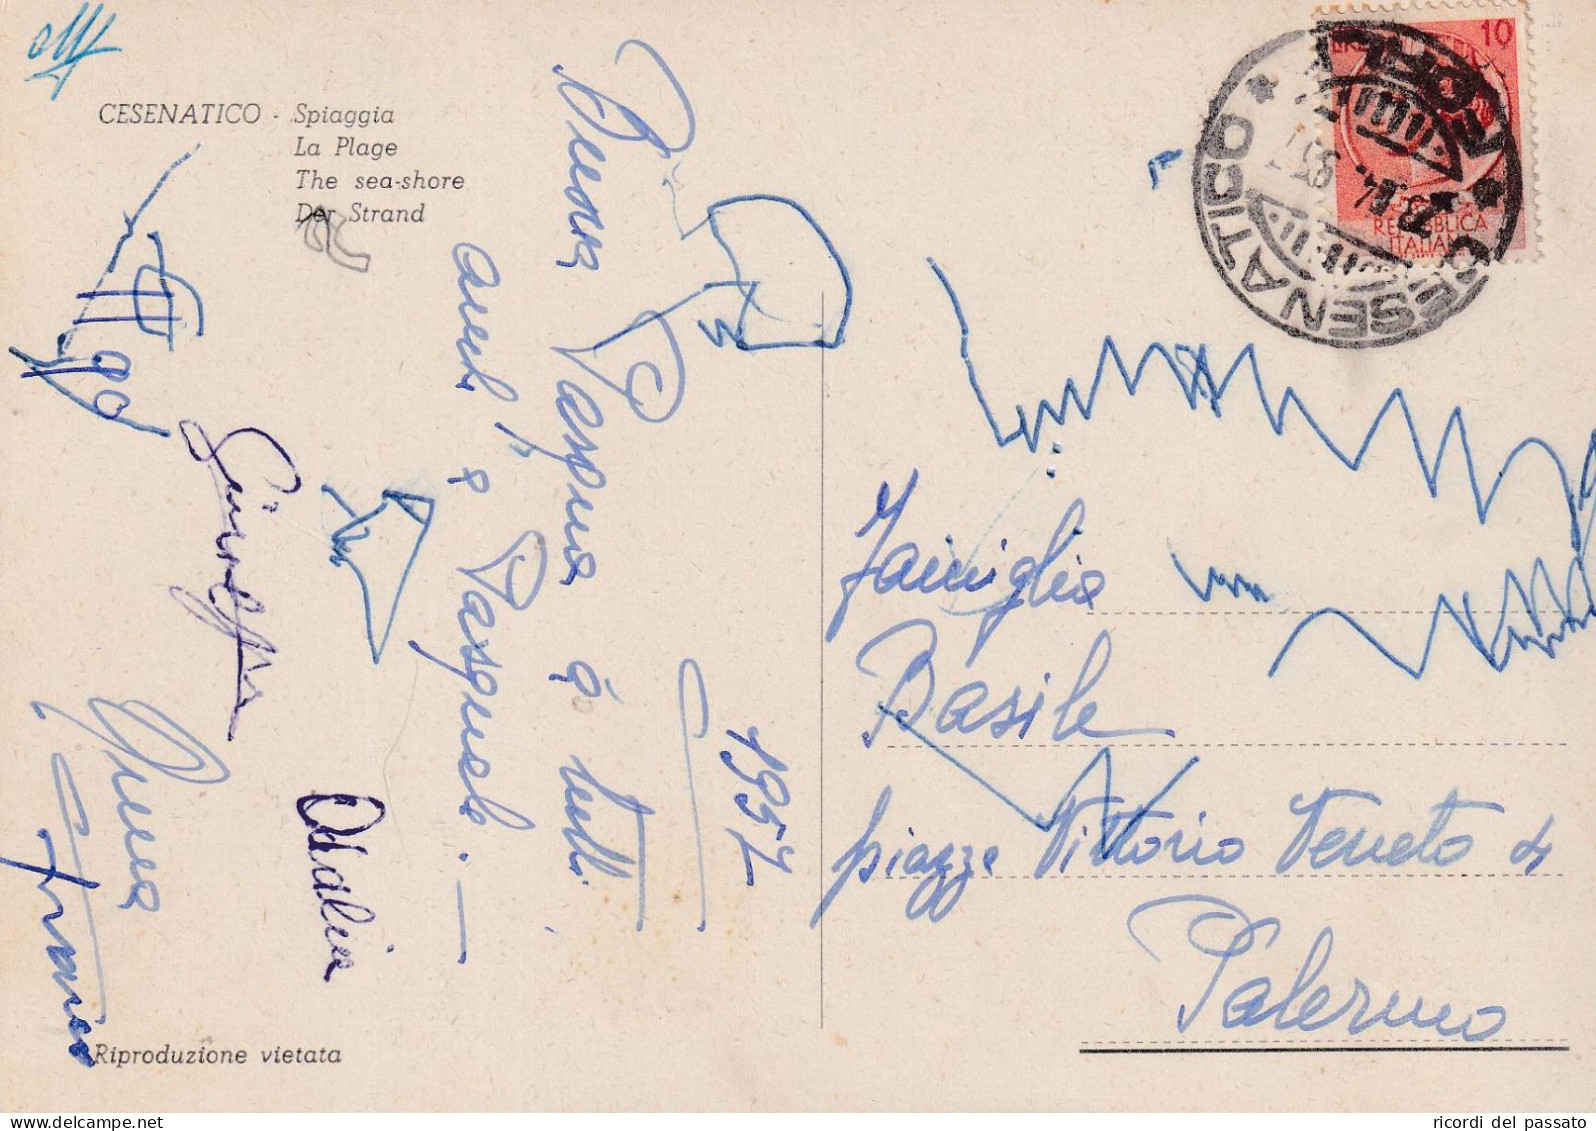 CESENATICO - Spiaggia
La Plage
The sea-shore
Der Strand
Buona Pasqua a tutti
anch' a Pasquale. —
1957
Giuseppe
Anna
Enrico
Odalia
Riproduzione vietata
10
REPUBBLICA
ITALIANA
CESENATICO
* FORLI *
Famiglia
Basile
piazza Vittorio Veneto 4
Palermo
ricordi del passato